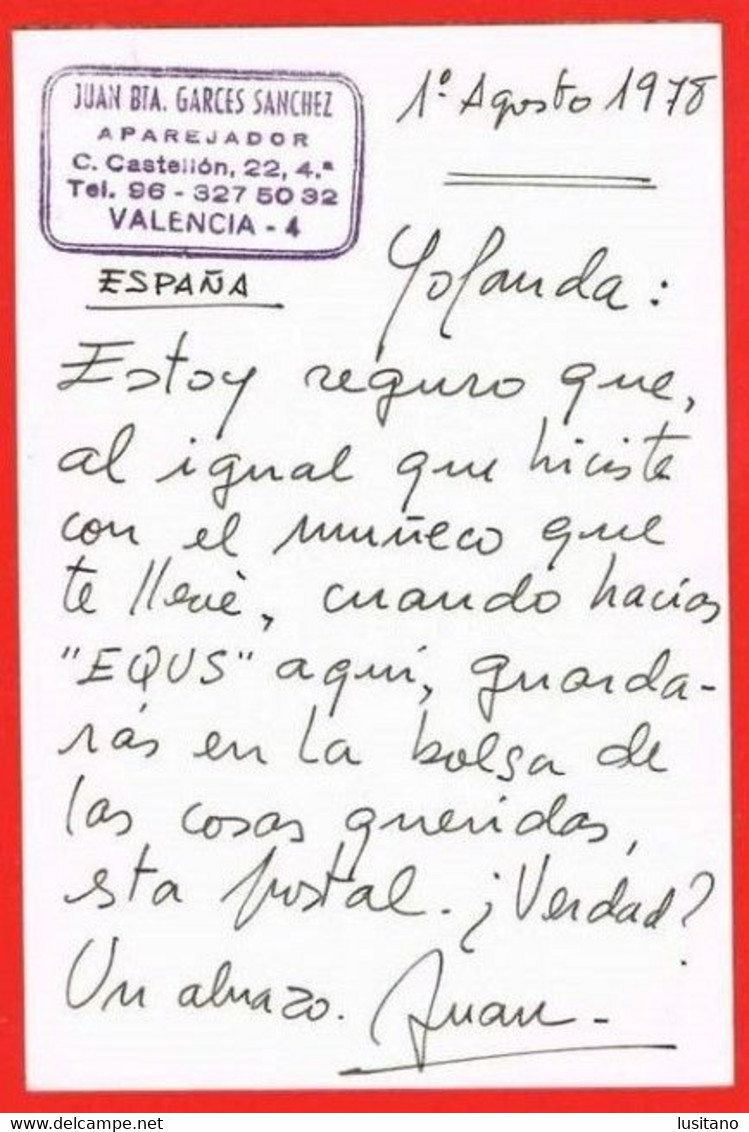 JUAN BTA. GARCES SANCHEZ
APAREJADOR
C. Castellón, 22, 4.ª
Tel. 96 - 327 50 32
VALENCIA - 4
ESPAÑA
1º Agosto 1978
Yolanda:
Estoy seguro que,
al igual que hiciste
con el muñeco que
te llevé, cuando hacías
"EQUS" aquí, guarda-
rás en la bolsa de
las cosas queridas,
esta postal. ¿Verdad?
Un abrazo. Juan -
lusitano